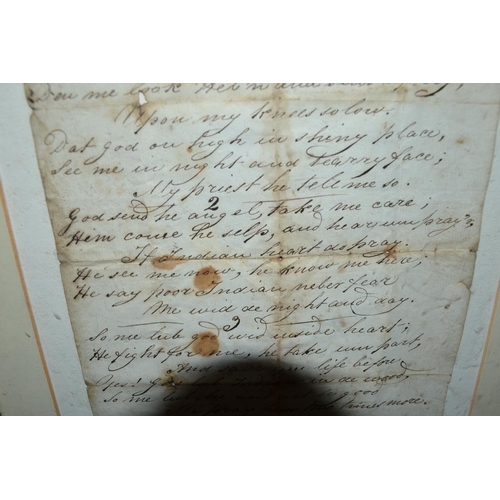 Upon my knees so low.
Dat god on high in shiny place,
See me in night and Tearry face;
My priest he tell me so.
2
God send he angel, take me care;
Him come he self, and hear um pray'r,
If Indian heart do pray.
He see me now, he know me here;
He say poor Indian neber fear
Me wid de night and day.
3
So me lub god wid inside heart;
He fight for me, he take um part,
life before
Yes! in de wood,
So me good
times more.